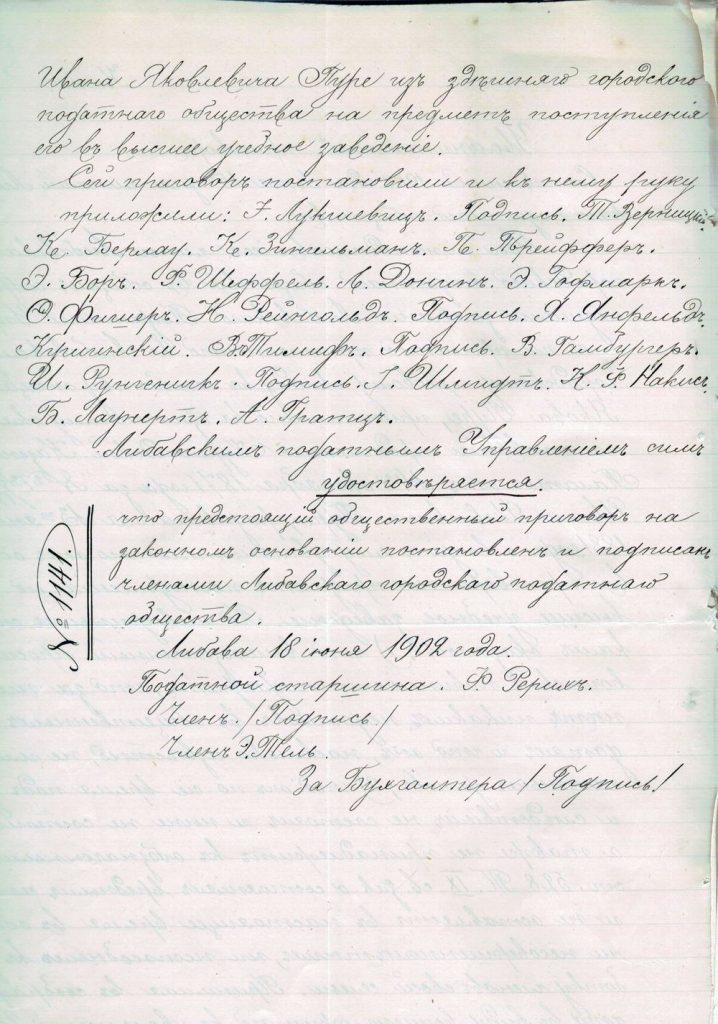 Ивана Яковлевича Пуре изъ здѣшняго городского
податнаго общества на предметъ поступленія
его въ высшее учебное заведеніе.
Сей приговоръ постановили и къ нему руку
приложили: Г. Лукшевицъ. Подпись. Т. Верницкій.
К. Берлау. К. Зингельманъ. П. Трейфферъ.
Э. Боръ. Ф. Шеффель. Л. Донинъ. Э. Гофмаркъ.
О. Фишеръ. Н. Рейнгольдъ. Подпись. Я. Янфельдъ.
Кушинскій. Подпись. В. Гамбургеръ.
И. Рунгеникъ. Подпись. Г. Шмидтъ. К. Ф. Накисъ.
Б. Лаунертъ. А. Гратцъ.
Либавскимъ податнымъ Управленіемъ симъ
удостовѣряется.
что предстоящій общественный приговоръ на
законномъ основаніи постановленъ и подписанъ
членами Либавскаго городскаго податнаго
общества.
№ 1141.
Либава 18 іюня 1902 года.
Податной старшина. Ф. Рерихъ.
Членъ. /Подпись/
Членъ Э. Тель.
За Бухгалтера /Подпись/